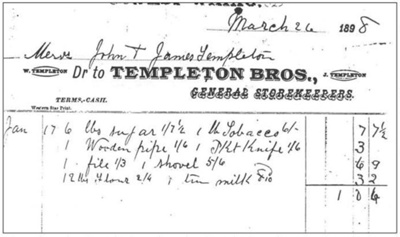 March 26 1898
Messrs John & James Templeton
W. TEMPLETON Dr to TEMPLETON BROS., J. TEMPLETON
GENERAL STOREKEEPERS.
TERMS.-CASH.
Western Star Print.
Jan 17 6 lbs sugar 1/7½ 1 lb Tobacco 6/- 7 7½
1 Wooden pipe 1/6 1 Pkt Knife 1/6 3
1 file 1/3 1 shovel 5/6 6 9
12 lbs Flour 2/4 1 tin milk /10 3 2
1 0 6